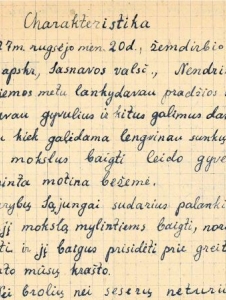 Charakteristika
27m. rugsėjo mėn. 20d., žemdirbio
apskr., Sasnavos valšč., Nendri
iemos metu lankydavau pradžios
avau gyvulius ir kitus galimus da
u kiek galėdama lengvinau sunk
mokslus baigti leido gyve
motina bežemė.
rybų Sąjungai sudarius palanki
jį mokslą mylintiems baigti, nor
ti ir jį baigus prisidėti prie greit
što mūsų krašto.
ei brolių nei seserų neturiu